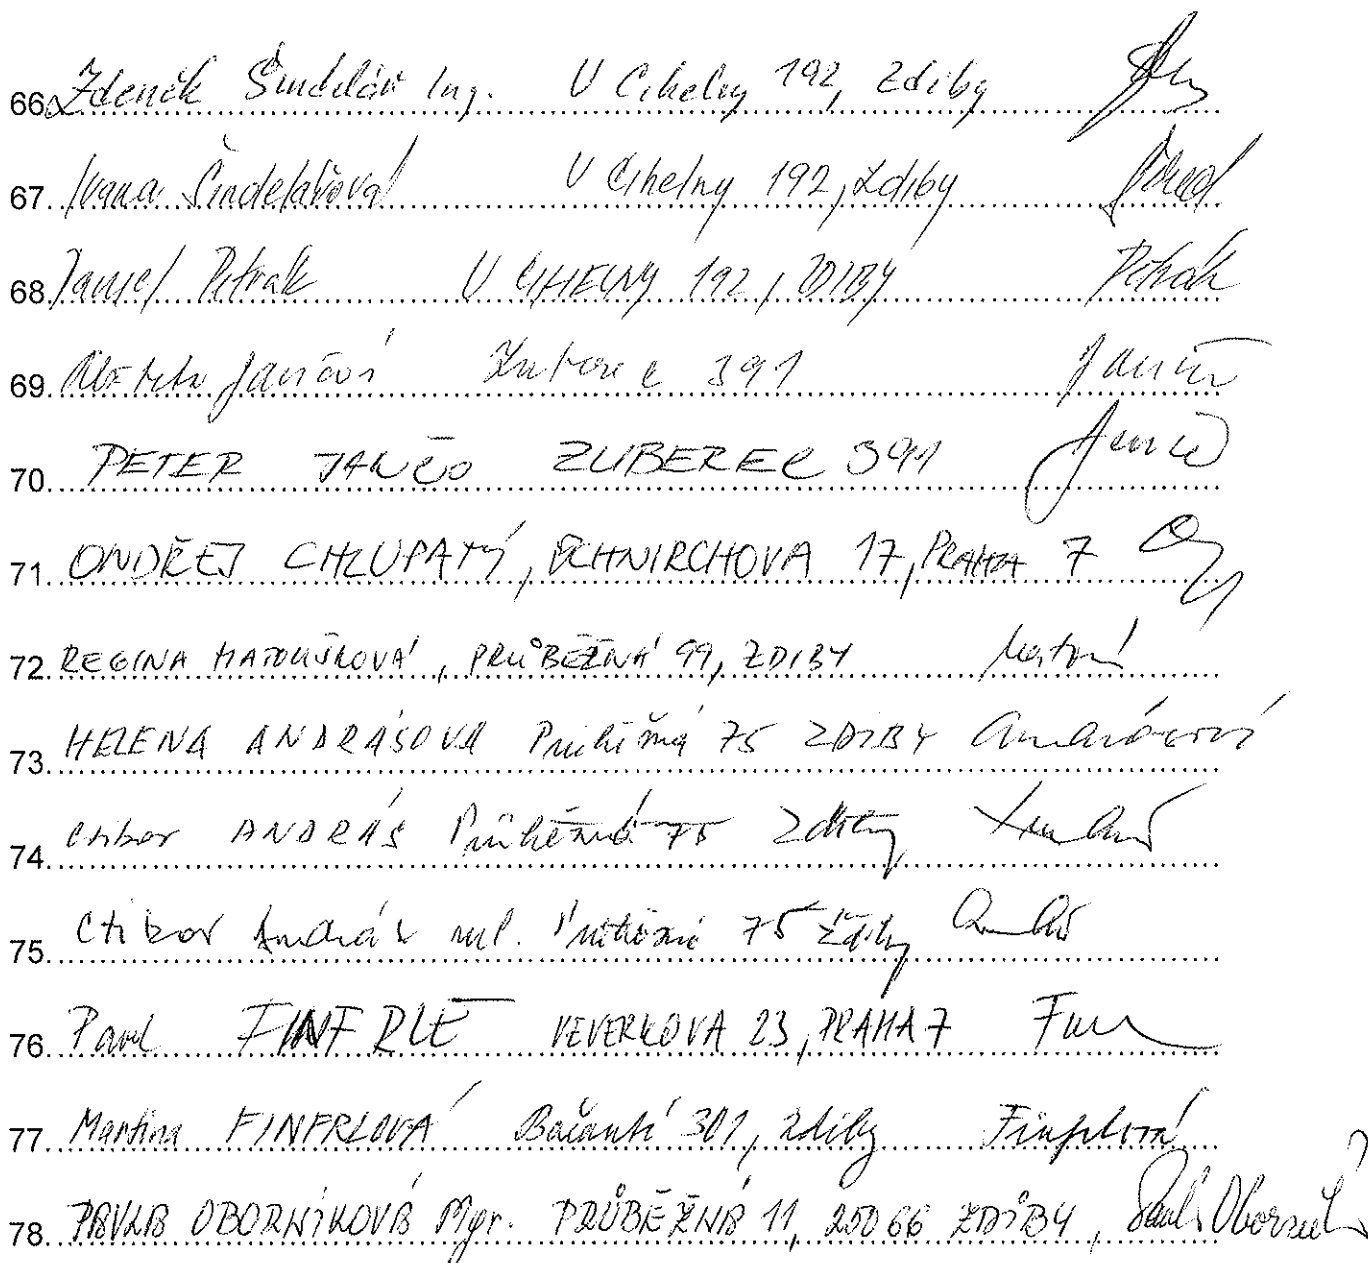 66. Zdeněk Šindelář Ing. U Cihelny 192, Zdiby
67. Ivana Šindelářová U Cihelny 192, Zdiby
68. Petrák U CIHELNY 192, ZDIBY Petrák
69. Jančoši 391
70. PETER JANČO ZUBEREC 391
71. ONDŘEJ CHLUPATÝ, ŠCHNIRCHOVA 17, PRAHA 7
72. REGINA MATOUŠKOVÁ, PRŮBĚŽNÁ 99, ZDIBY
73. HELENA ANDRÁŠOVÁ Průběžná 75 ZDIBY
74. Ctibor ANDRÁŠ Průběžná 75 Zdiby
75. Ctibor Andráš ml. Průběžná 75 Zdiby
76. Pavel FINFRLE VEVERKOVA 23, PRAHA 7
77. Martina FINFRLOVÁ 301, Zdiby Finfrlová
78. PAVLA OBORNÍKOVÁ Mgr. PRŮBĚŽNÁ 11, 25066 ZDIBY,